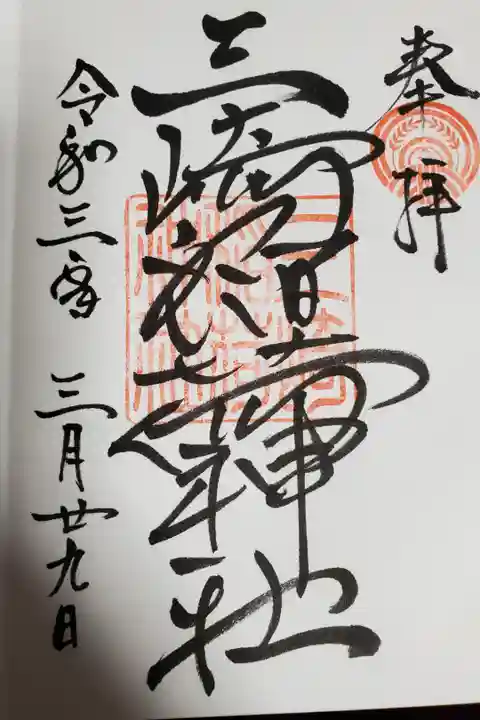 奉拝
三崎稲荷神社
令和三年 三月廿九日